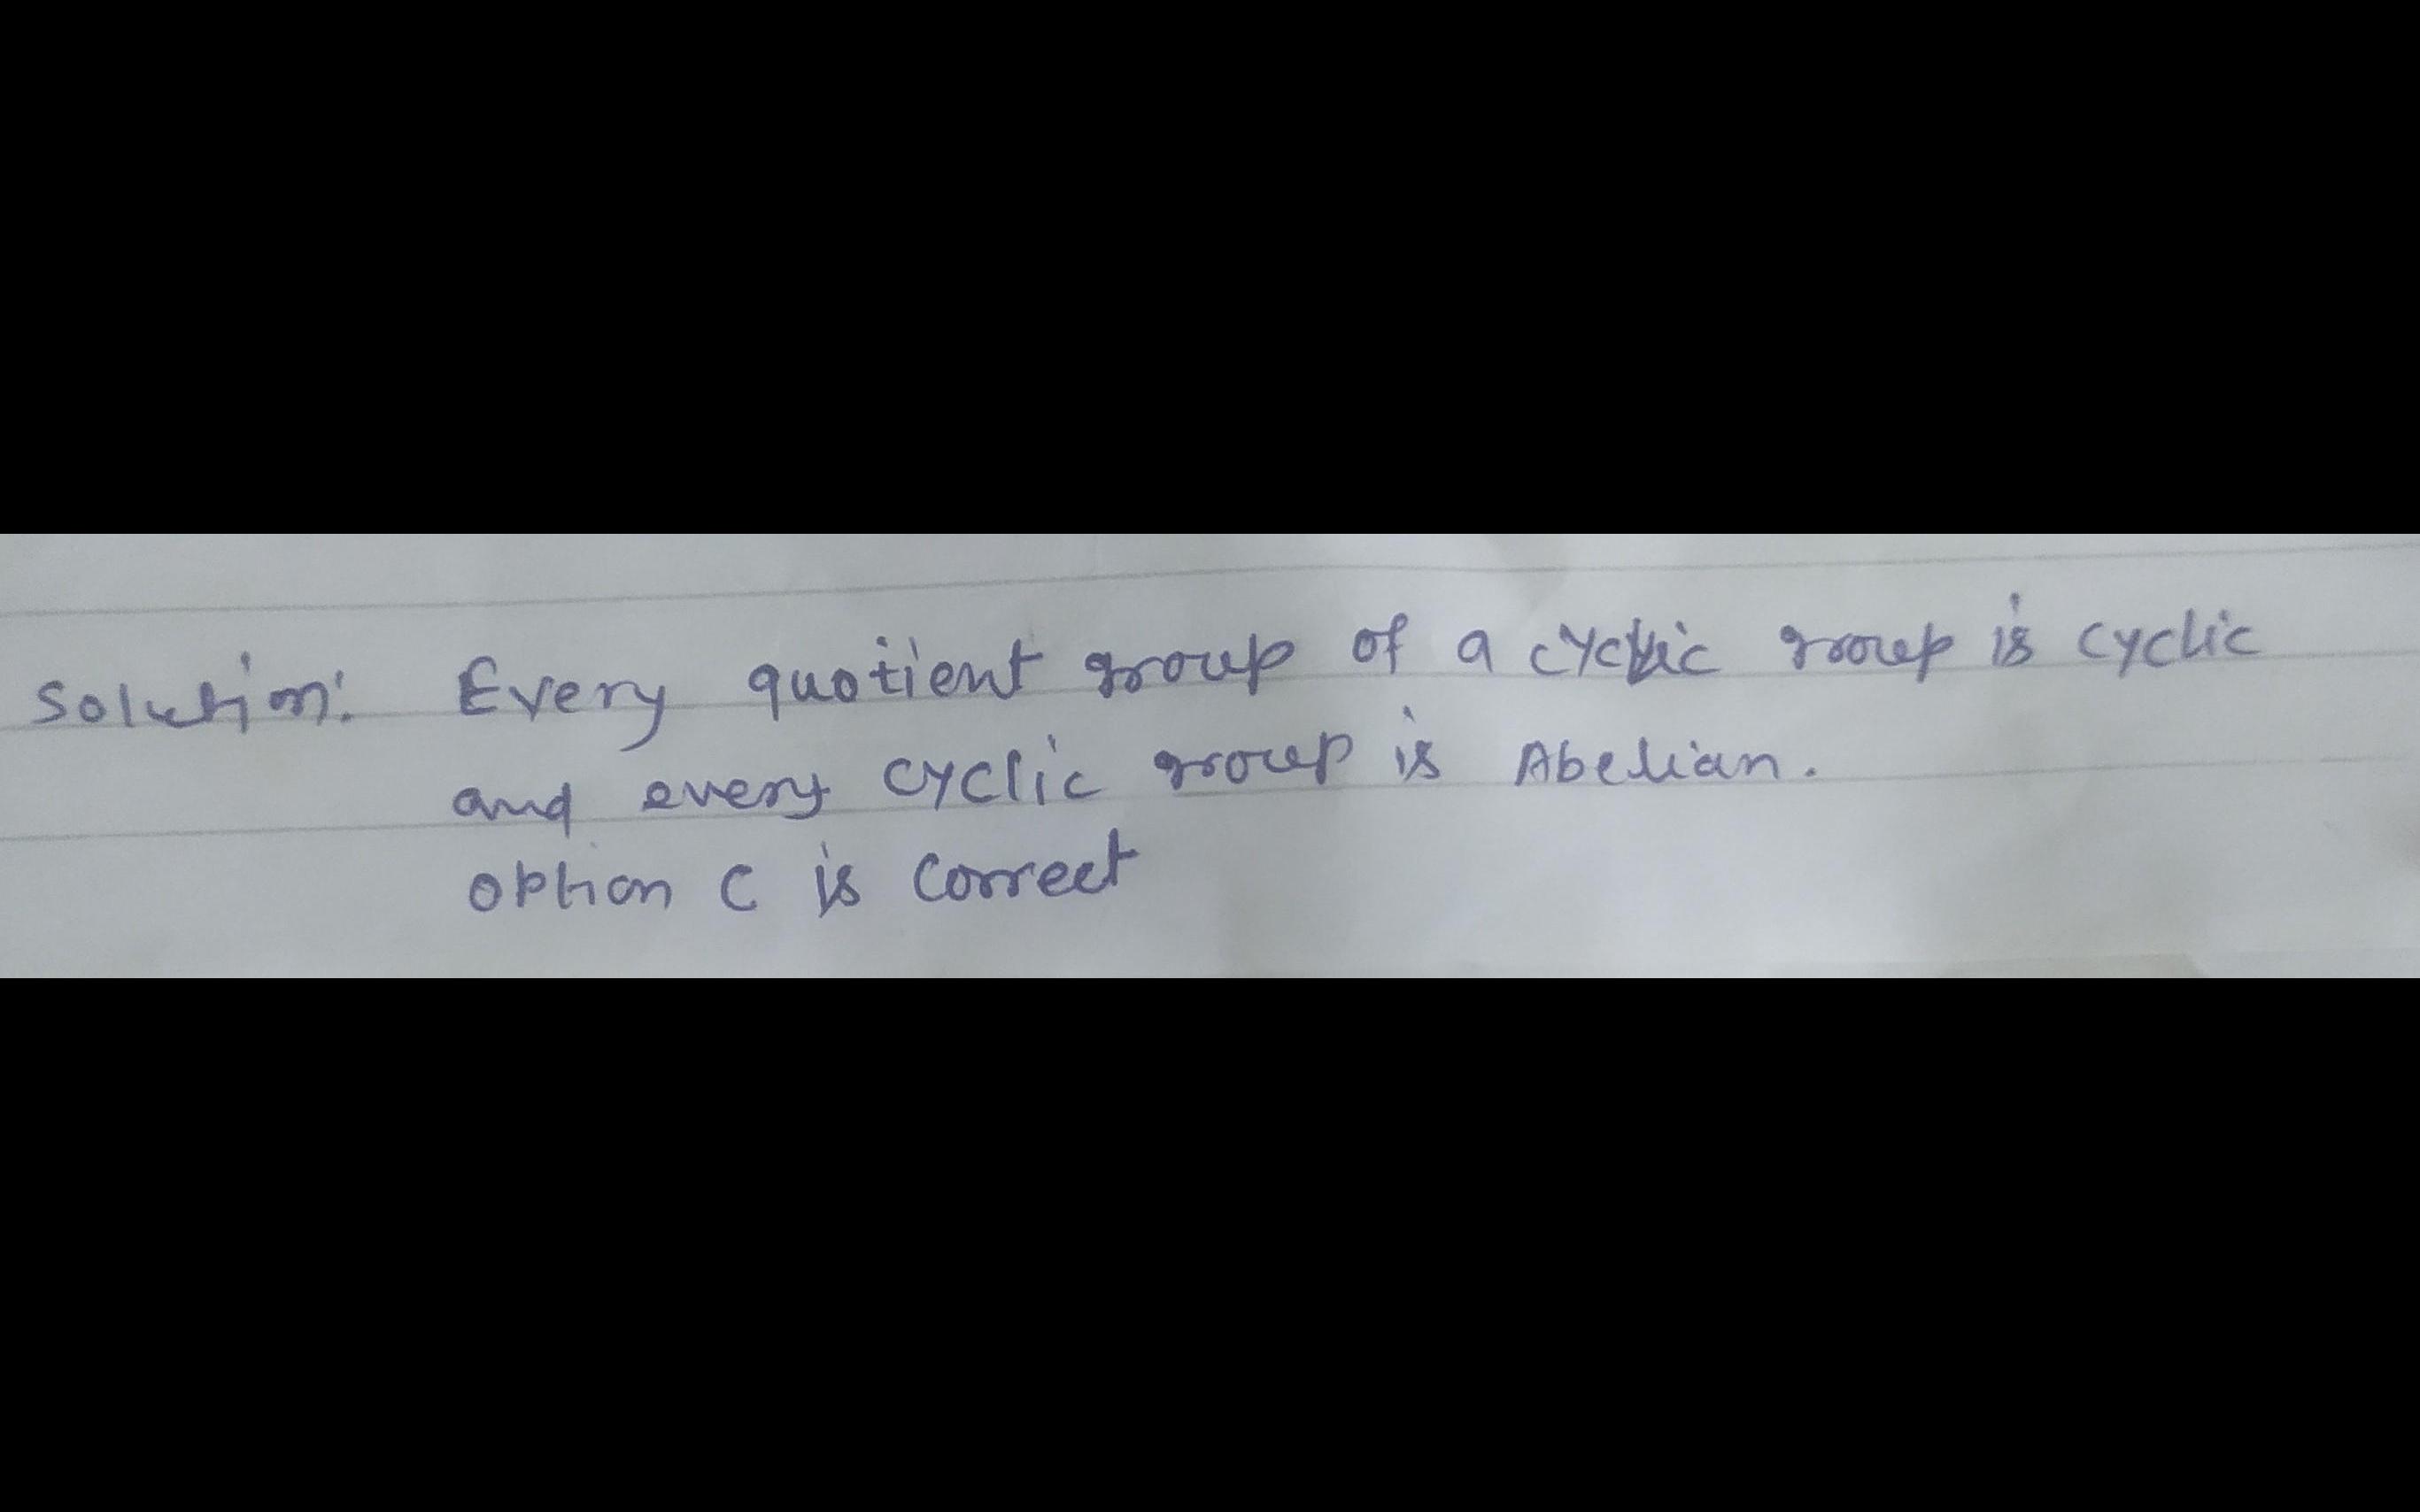 Solution: Every quotient group of a cyclic group is cyclic
and every cyclic group is Abelian.
option C is correct